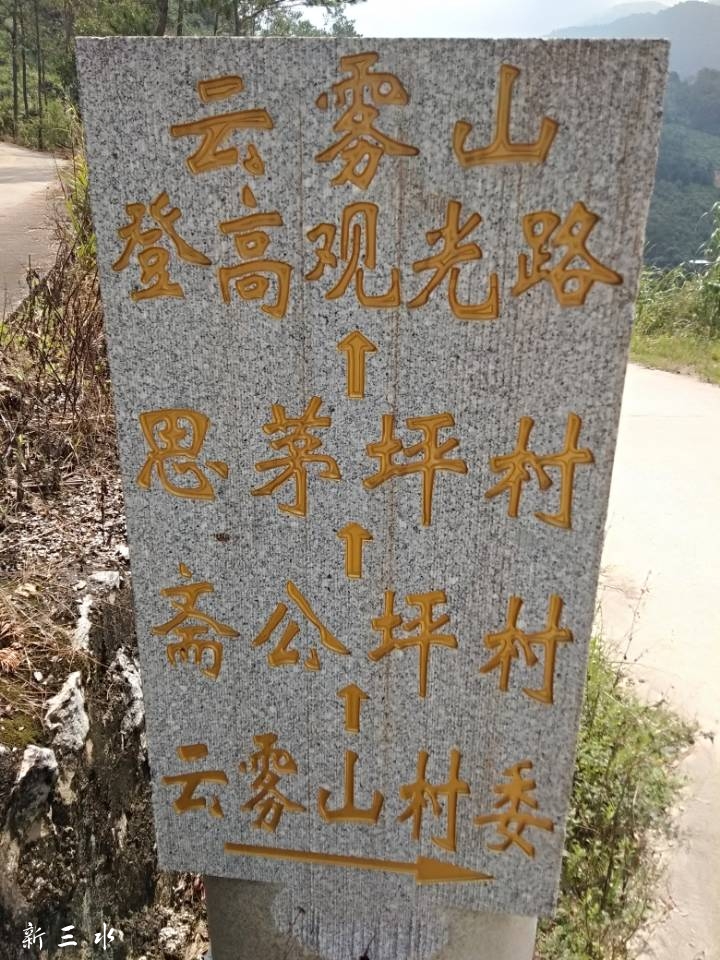 云雾山
登高观光路
思茅坪村
斋公坪村
云雾山村委
新三水